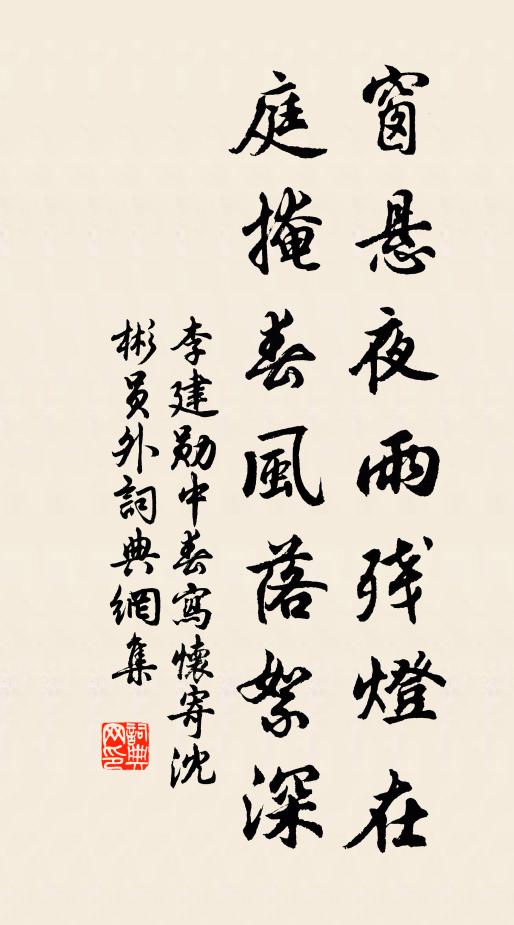 窗悬夜雨残燈在
庭掩春風落絮深
李建勋中春寫懷寄沈
彬員外詞典網集
詞典
网印